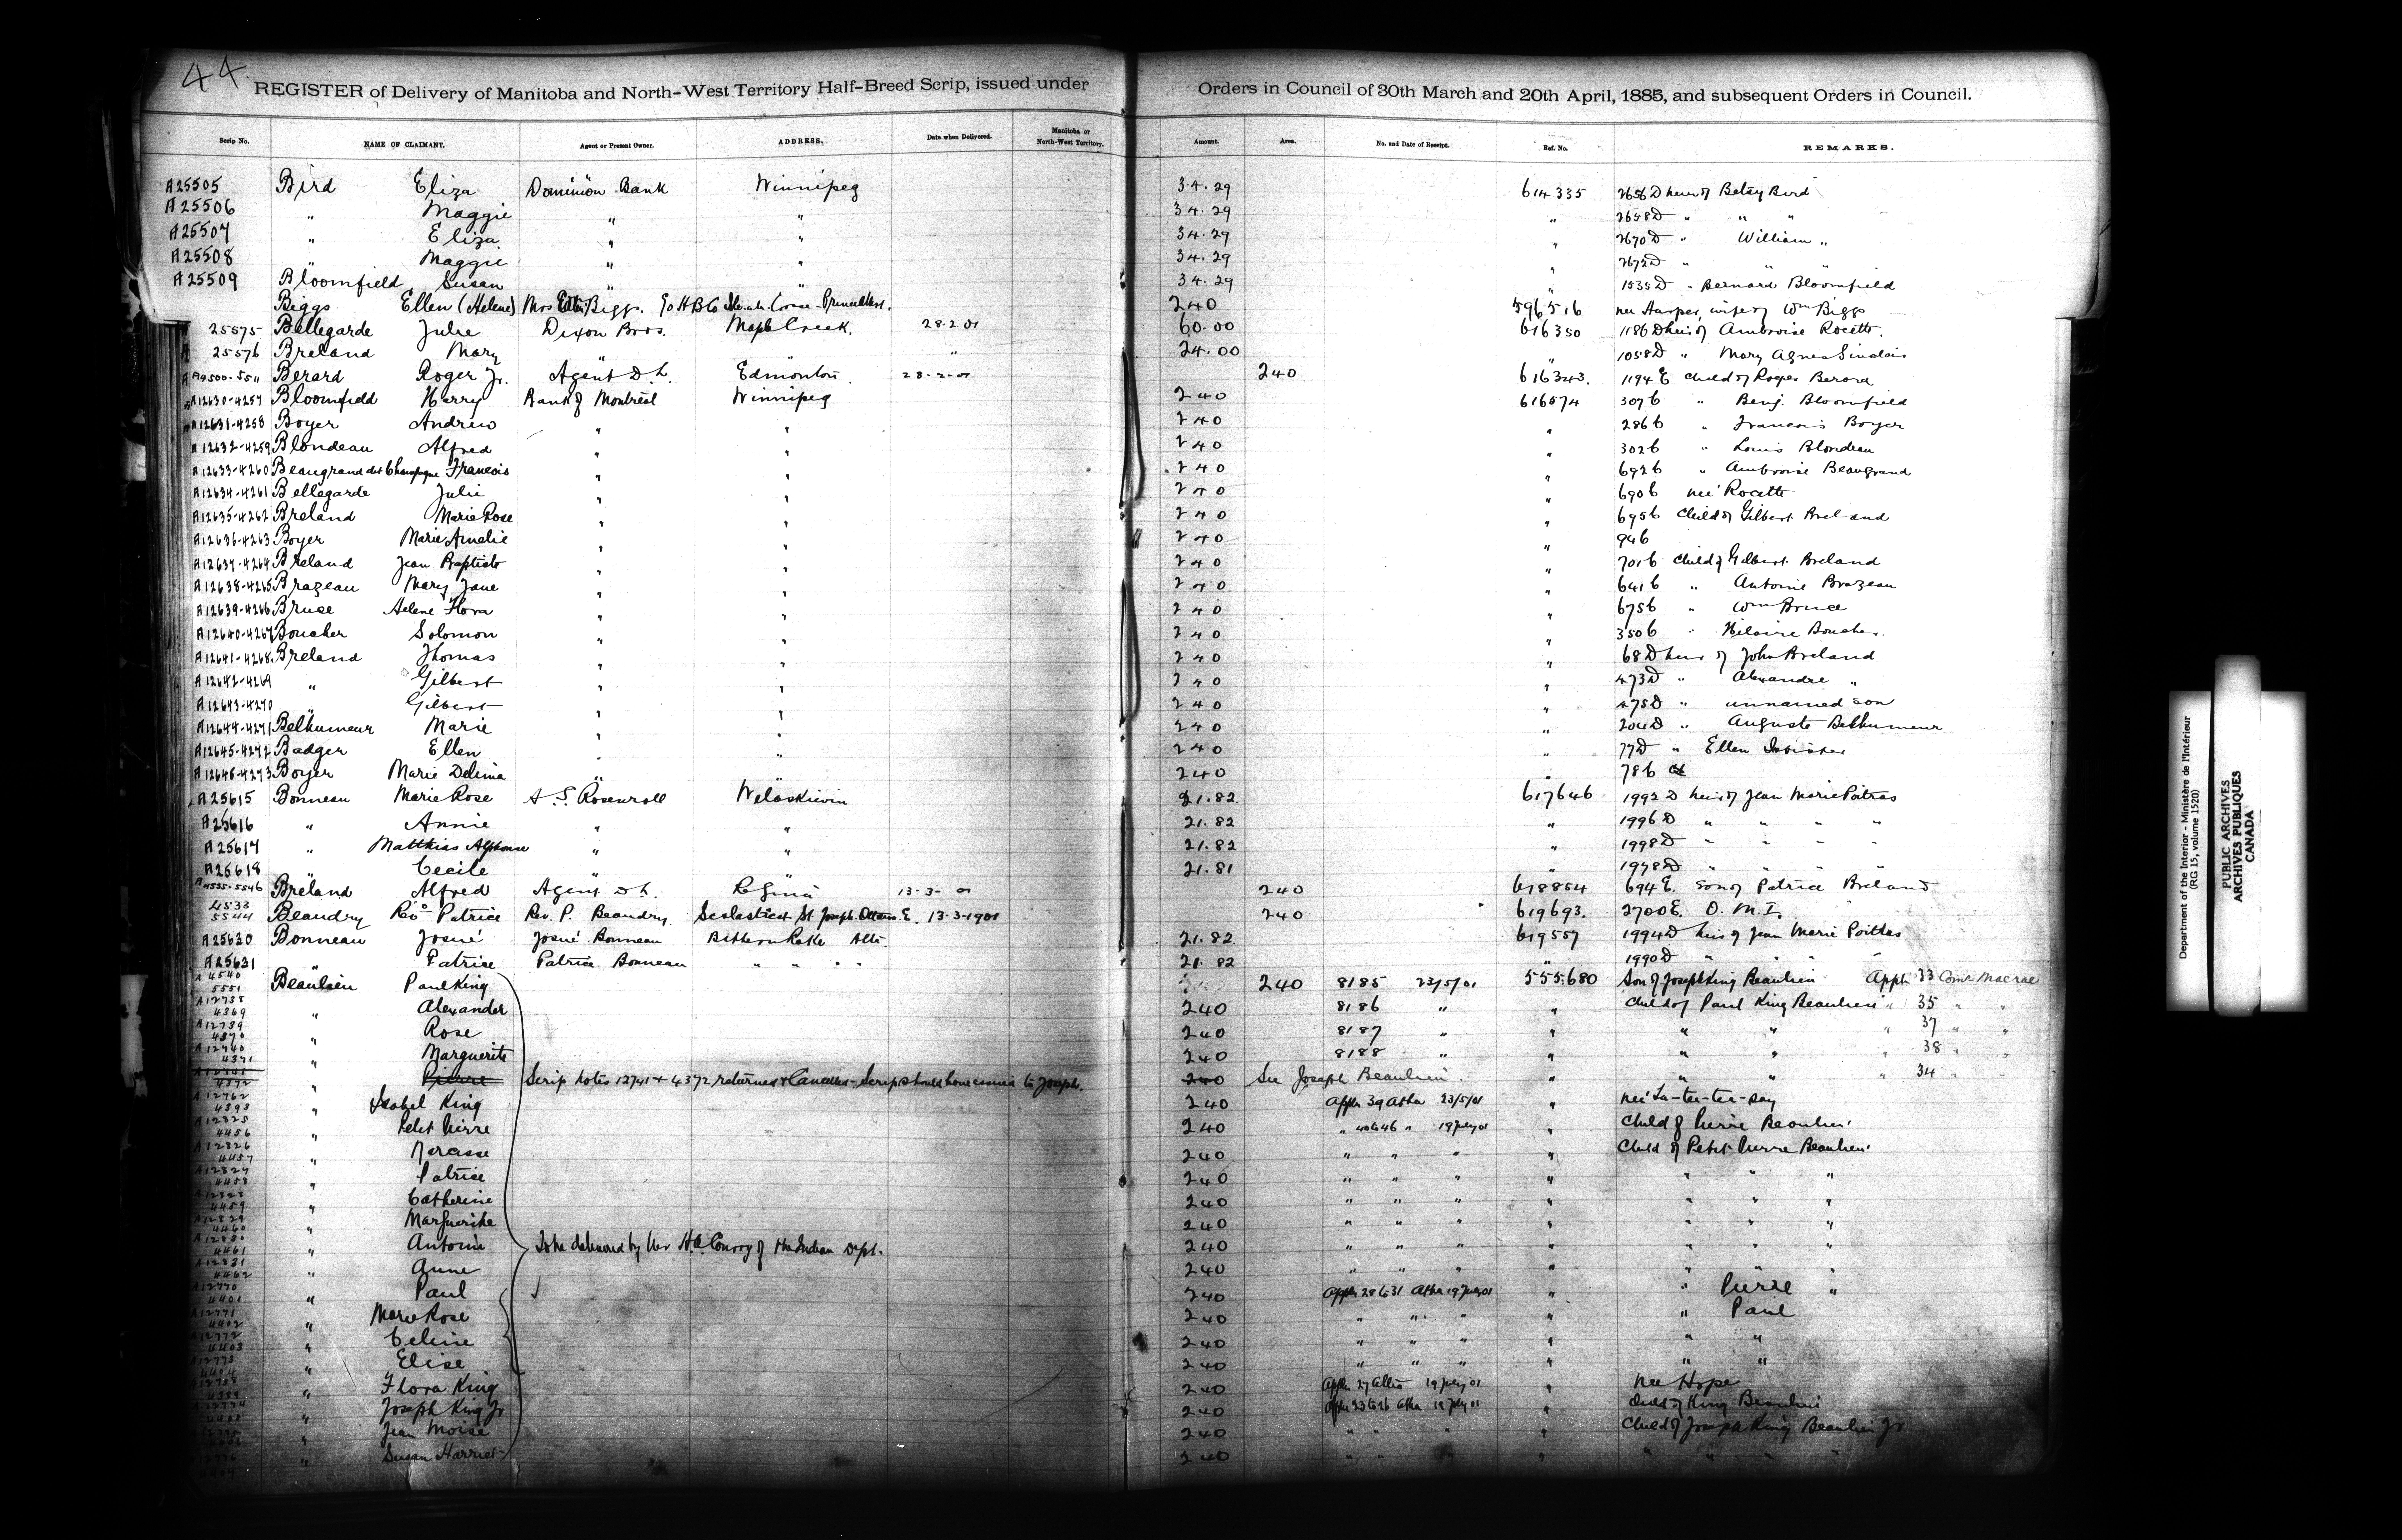 44
REGISTER of Delivery of Manitoba and North-West Territory Half-Breed Scrip, issued under Orders in Council of 30th March and 20th April, 1885, and subsequent Orders in Council.
Scrip No. NAME OF CLAIMANT. Agent or Present Owner. ADDRESS. Date when Delivered. Manitoba or North-West Territory. Amount. Area. No. and Date of Receipt. Ref. No. REMARKS.
A25505 Bird Eliza Dominion Bank Winnipeg 34.29 614335 2656D heir of Betsy Bird
A25506 " Maggie " " 34.29 " 2658D " " "
A25507 " Eliza " " 34.29 " 2670D " William "
A25508 " Maggie " " 34.29 " 2672D " " "
A25509 Bloomfield Susan " " 34.29 " 1535D " Bernard Bloomfield
Biggs Ellen (Helene) Mrs Biggs. c/o H B Co 240 596516 nee Harper, wife of Wm Biggs
25575 Bellegarde Julie Dixon Bros. Maple Creek. 28-2-01 60.00 616350 1186D heir of Ambroise Rocette.
25576 Breland Mary " " " 24.00 " 1058D " Mary Agnes Sinclair
A4500-5511 Berard Roger Jr. Agent D.L. Edmonton. 28-2-01 240 616343. 1194 E child of Roger Berard
A12630-4257 Bloomfield Harry Bank of Montreal Winnipeg 240 616574 307b " Benj. Bloomfield
A12631-4258 Boyer Andrew " " 240 " 286b " Francois Boyer
A12632-4259 Blondeau Alfred " " 240 " 302b " Louis Blondeau
A12633-4260 Beaugrand dit Champagne Francois " " 240 " 692b " Ambroise Beaugrand
A12634-4261 Bellegarde Julie " " 240 " 690b nee Rocette
A12635-4262 Breland Marie Rose " " 240 " 695b Child of Gilbert Breland
A12636-4263 Boyer Marie Amelie " " 240 " 94b
A12637-4264 Breland Jean Baptiste " " 240 " 701b child of Gilbert Breland
A12638-4265 Brazeau Mary Jane " " 240 " 641b " Antoine Brazeau
A12639-4266 Bruse Helene Flora " " 240 " 675b " Wm Bruce
A12640-4267 Boucher Solomon " " 240 " 350b " Hilaire Boucher.
A12641-4268 Breland Thomas " " 240 " 68D heir of John Breland
A12642-4269 " Gilbert " " 240 " 473D " Alexandre "
A12643-4270 " Gilbert " " 240 " 475D " unnamed son
A12644-4271 Belhumeur Marie " " 240 " 204D " Auguste Belhumeur
A12645-4272 Badger Ellen " " 240 " 77D " Ellen Isbister
A12646-4273 Boyer Marie Delima " " 240 " 786
A25615 Bonneau Marie Rose A. S. Rosenroll Wetaskiwin 21.82 617646 1992D heir of Jean Marie Poitras
A25616 " Annie " " 21.82 " 1996D " " " "
A25617 " Matthias Alphonse " " 21.82 " 1998D " " " "
A25618 " Cecile " " 21.81 " 1978D " " " "
A4535-5546 Breland Alfred Agent D.L. Regina 13-3-01 240 618854 694 E. son of Patrice Breland
4533 5544 Beaudry Patrice Rev. P. Beaudry. Scolasticat St Joseph Ottawa E. 13-3-1901 240 619693. 2700E. O.M.I.
A25630 Bonneau Josué Josué Bonneau Bittern Lake Alta. 21.82 619557 1994D heir of Jean Marie Poitras
A25631 " Patrice Patrice Bonneau " " " " 21.82 " 1990D " " "
A 4540 5551 Beaulieu Paul King 240 8185 23/5/01 555680 Son of Joseph King Beaulieu Appn 33 Comr Macrae
4369 " Alexander 240 8186 " " Child of Paul King Beaulieu " 35 " "
A12739 4370 " Rose 240 8187 " " " " " 37 " "
A12740 4371 " Marguerite 240 8188 " " " " " 38 " "
A12741 4372 " Pierre Scrip notes 12741 & 4372 returned & Cancelled - Scrip should have issued to Joseph. 240 See Joseph Beaulieu. " " " " 34 "
A12762 4393 " Isabel King 240 Appn 39 Atha 23/5/01 "
A12825 4456 " Petit Pierre 240 " 40 to 46 " 19 July 01 " Child of Pierre Beaulieu
A12826 4457 " Narcisse 240 " " " " Child of Petit Pierre Beaulieu
A12827 4458 " Patrice 240 " " " " " " "
A12828 4459 " Catherine 240 " " " " " " "
A12829 4460 " Marguerite 240 " " " " " " "
A12830 4461 " Antoine To be delivered by H.A. Conroy of the Indian Dept. 240 " " " " " " "
A12831 4462 " Anne 240 " " " " " " "
A12770 4401 " Paul 240 Appn 28 to 31 Atha 19 July 01 " " Pierre "
A12771 4402 " Marie Rose 240 " " " " " Paul
A12772 4403 " Celine 240 " " " " " "
A12773 4404 " Elise 240 " " " " " "
" Flora King 240 Appn 27 Atha 19 July 01 " nee Hope
" Joseph King Jr 240 Appn 23 to 26 Atha 19 July 01 " Child of King Beaulieu
" Jean Moise 240 " " " " Child of Joseph King Beaulieu Jr.
" Susan Harriet 240 " " " " " " "
Department of the Interior - Ministère de l'Intérieur
(RG 15, volume 1520)
PUBLIC ARCHIVES
ARCHIVES PUBLIQUES
CANADA